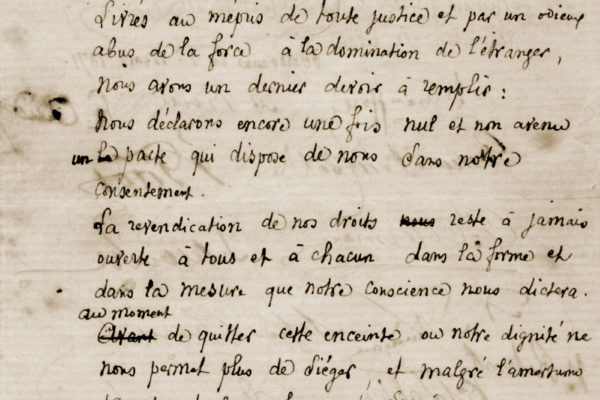 Livrés au mépris de toute justice et par un odieux
abus de la force à la domination de l'étranger,
nous avons un dernier devoir à remplir :
nous déclarons encore une fois nul et non avenu
un pacte qui dispose de nous sans notre
consentement.
La revendication de nos droits nous reste à jamais
ouverte à tous et à chacun dans la forme et
dans la mesure que notre conscience nous dictera.
au moment
Avant de quitter cette enceinte ou notre dignité ne
nous permet plus de siéger, et malgré l'amertume